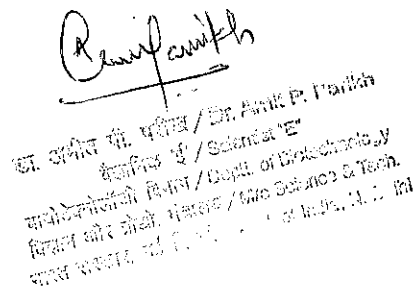 डा. अमीत पी. परीख / Dr. Amit P. Parikh
वैज्ञानिक 'ई' / Scientist "E"
बायोटेक्नोलॉजी विभाग / Deptt. of Biotechnology
विज्ञान और प्रौद्यो. मंत्रालय / M/o Science & Tech.
भारत सरकार, नई of India,